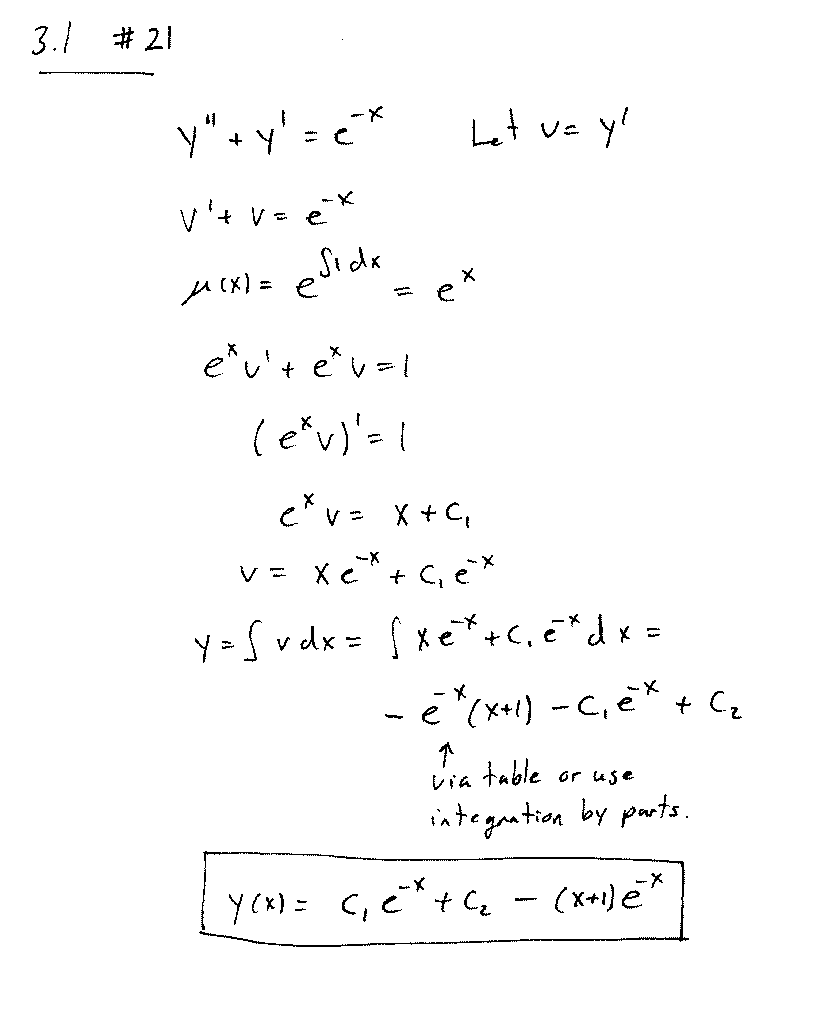 3.1 #21
y" + y' = e^{-x} Let v = y'
v' + v = e^{-x}
μ(x) = e^{∫1dx} = e^x
e^x v' + e^x v = 1
(e^x v)' = 1
e^x v = x + C₁
v = xe^{-x} + C₁e^{-x}
y = ∫ v dx = ∫ xe^{-x} + C₁e^{-x} dx =
- e^{-x}(x+1) - C₁e^{-x} + C₂
↑
via table or use
integration by parts.
y(x) = C₁e^{-x} + C₂ - (x+1)e^{-x}